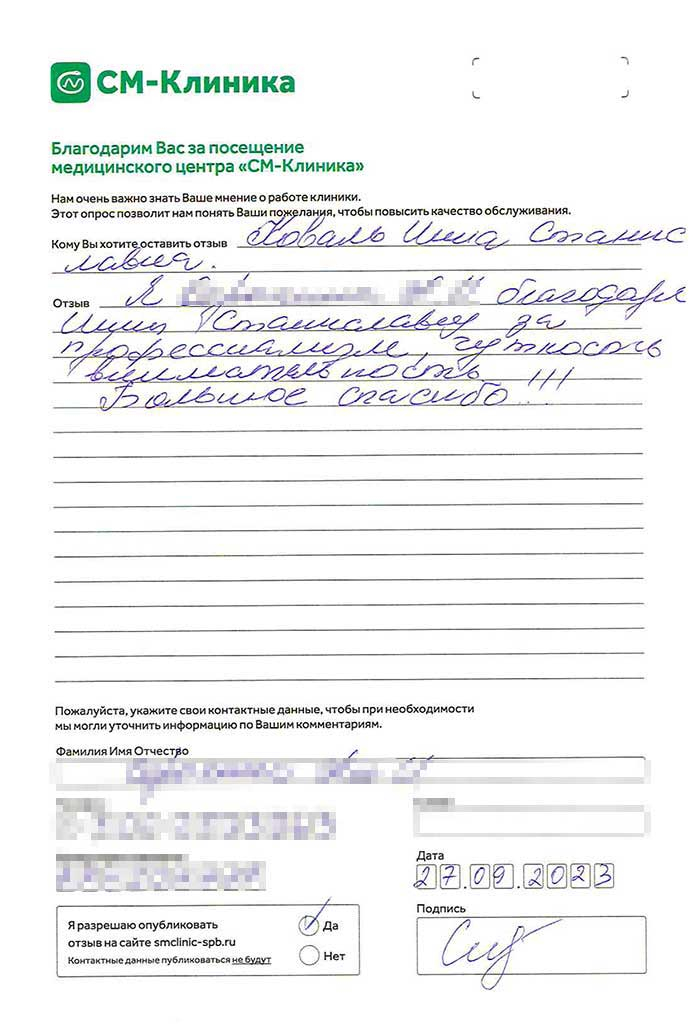 СМ-Клиника
Благодарим Вас за посещение
медицинского центра «СМ-Клиника»
Нам очень важно знать Ваше мнение о работе клиники.
Этот опрос позволит нам понять Ваши пожелания, чтобы повысить качество обслуживания.
Кому Вы хотите оставить отзыв Коваль Инна Станис
лавна.
Отзыв Я благодарю
Инну Станиславну за
профессионализм, чуткость
внимательность
Большое спасибо!!!
Пожалуйста, укажите свои контактные данные, чтобы при необходимости
мы могли уточнить информацию по Вашим комментариям.
Фамилия Имя Отчество
Дата
27.09.2023
Подпись
Я разрешаю опубликовать
отзыв на сайте smclinic-spb.ru
Контактные данные публиковаться не будут
Да
Нет